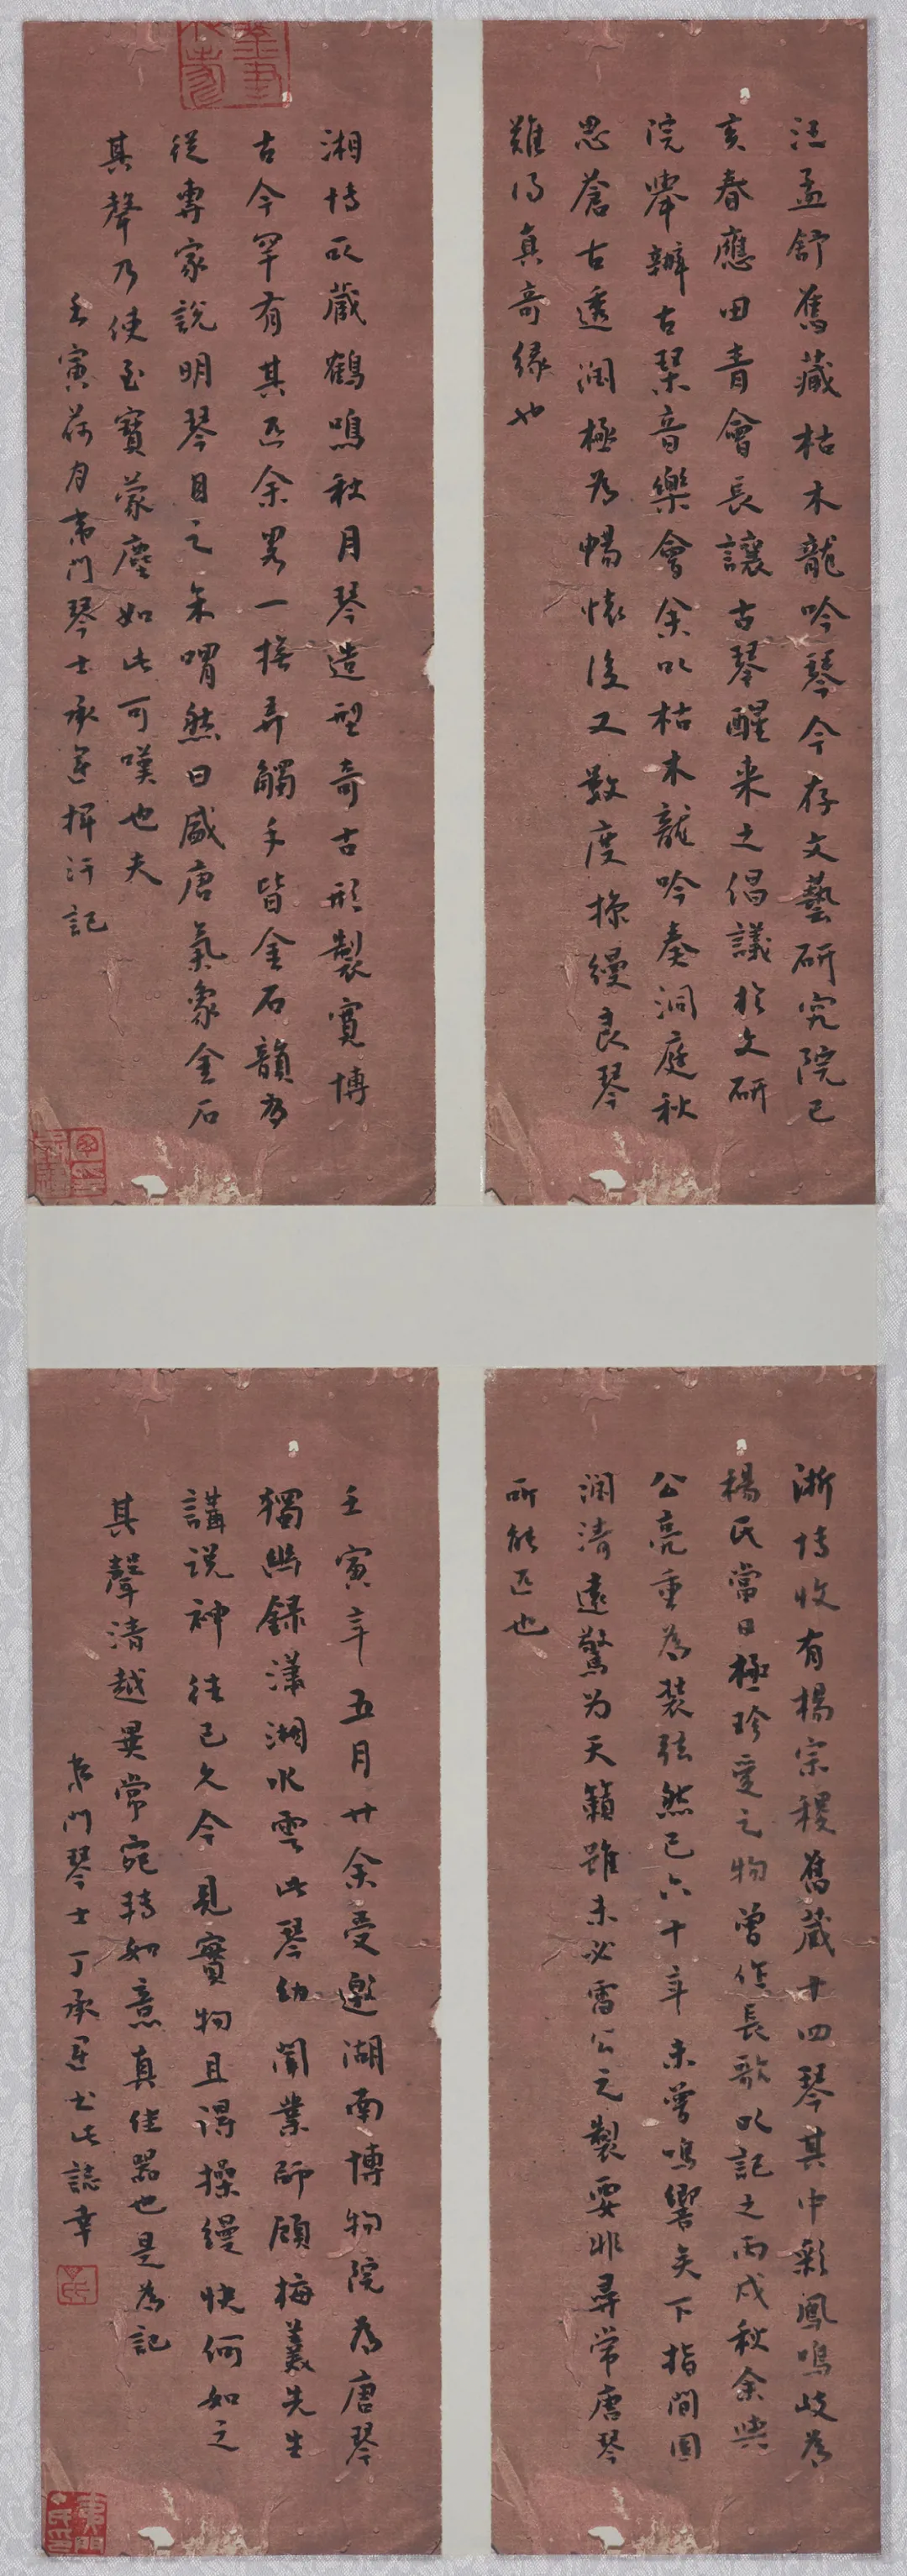 汪孟舒舊藏枯木龍吟琴今存文藝研究院己
亥春應田青會長讓古琴醒來之倡議於文研
院舉辦古琴音樂會余以枯木龍吟奏洞庭秋
思蒼古透潤極為暢懷後又數度操縵良琴
難得真奇緣也
湘博所藏鶴鳴秋月琴造型奇古形製寬博
古今罕有其匹余畧一撫弄觸手皆金石韻為
從專家說明琴目之余喟然曰盛唐氣象金石
其聲乃使至寶蒙塵如此可嘆也夫
壬寅荷月吳門琴士承運揮汗記
浙博收有楊宗稷舊藏十四琴其中彩鳳鳴岐為
楊氏當日極珍愛之物曾作長歌以記之丙戌秋余與
公亮重為裝弦然已六十年未曾鳴響矣下指間圓
潤清遠驚为天籟雖未必雷公之製要非尋常唐琴
所能匹也
壬寅年五月廿余受邀湖南博物院為唐琴
獨幽錄瀟湘水雲此琴幼聞業師顧梅羹先生
講説神往已久今見實物且得操縵快何如之
其聲清越異常宛轉如意真佳器也是為記
吳門琴士丁承運书此誌幸